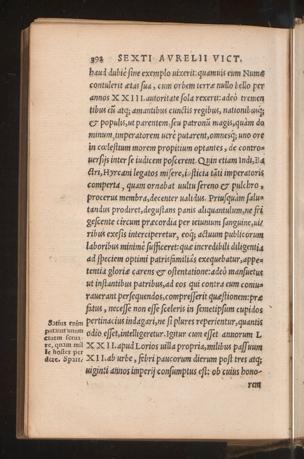 392 SEXTI AVRELII VICT.
haud dubiè sine exemplo uixerit: quamuis eum Numæ
contulerit ætas sua, cum orbem terræ nullo bello per
annos XXIII. autoritate sola rexerit: adeò tremen
tibus eū atq; amantibus cunctis regibus, nationibusq́;
& populis, ut parentem, seu patronū magis, quàm do
minum, imperatorem ue re putarent, omnesq́; uno ore
in cœlestium morem propitium optantes, de contro‍
uersijs inter se iudicem poscerent. Quin etiam Indi, Ba
ctri, Hyrcani legatos misere, iustitia tāti imperatoris
comperta, quam ornabat uultu sereno & pulchro,
procerus membra, decenter ualidus. Priusquàm salu‍
tandus prodiret, degustans panis aliquantulum, ne fri
gescente circum præcordia per ieiunium sanguine, ui‍
ribus exesis interciperetur, eoq́; actuum publicorum
laboribus minimè sufficeret: quæ incredibili diligentia
ad speciem optimi patrisfamiliâs exequebatur, appe‍
tentia gloriæ carens & ostentatione: adeò mansuetus
ut instantibus patribus, ad eos qui contra eum coniu‍
rauerant persequendos, compresserit quæstionem: præ
fatus, necesse non esse sceleris in semetipsum cupidos
pertinacius indagari, ne si plures reperirentur, quantis
odio esset, intelligeretur. Igitur cum esset annorum L
XXII. apud Lorios uilla propria, milibus passuum
XII. ab urbe, febri paucorum dierum post tres atq;
uiginti annos imperij consumptus est: ob cuius hono‍
rem
Satius enim
putabat unum
ciuem serua‍
re, quàm mil
le hostes per
dere. Spart.